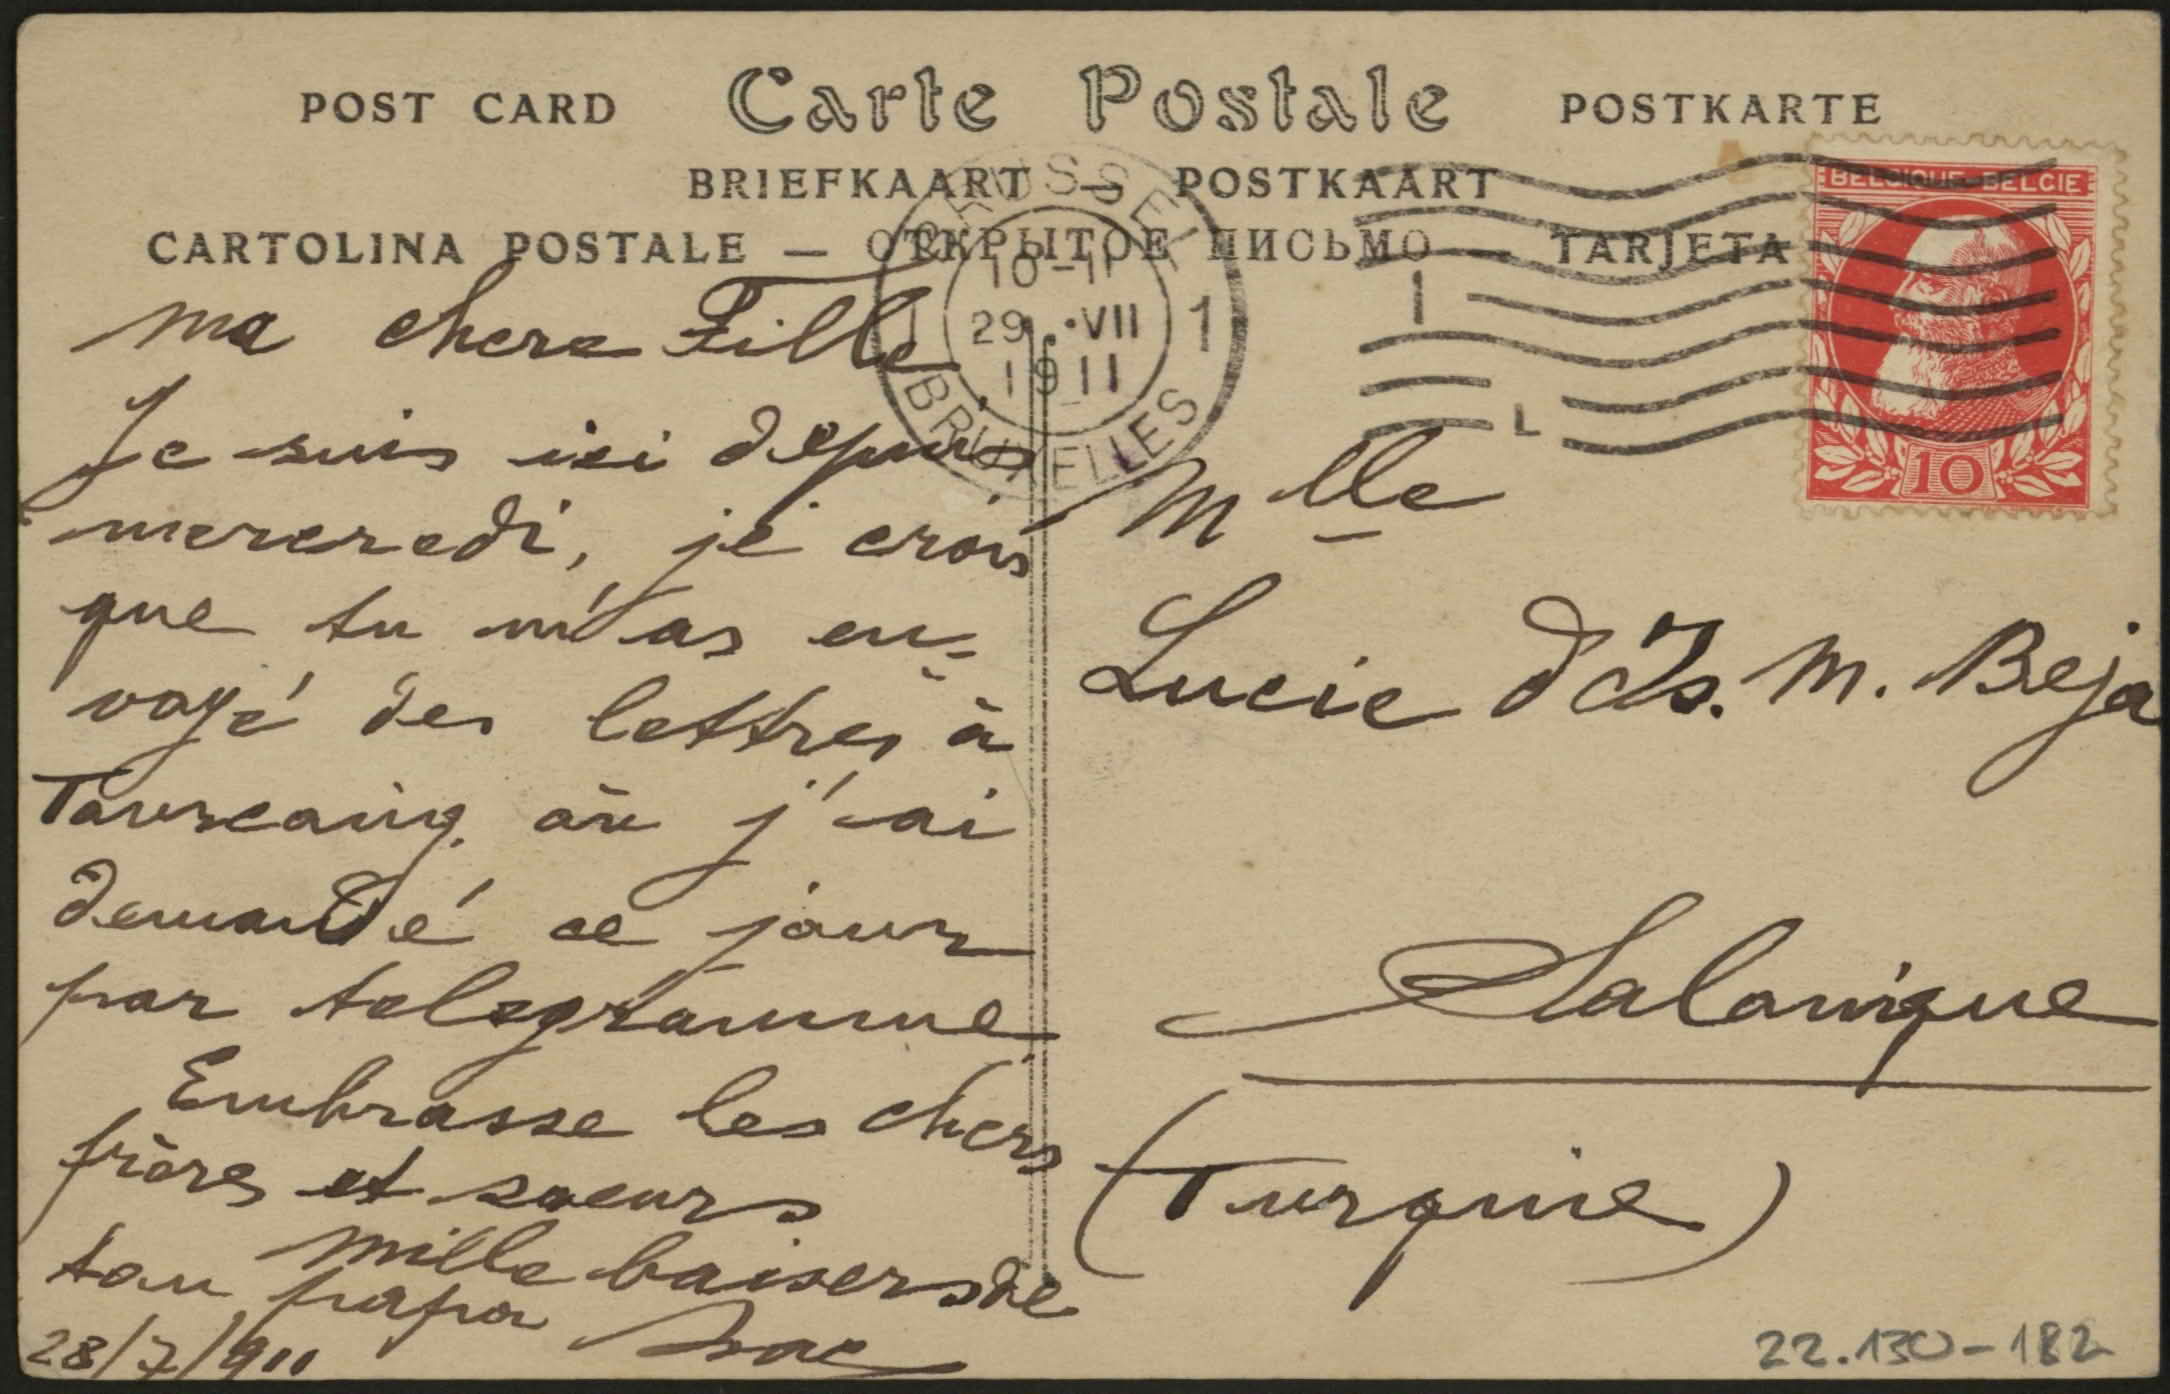 POST CARD Carte Postale POSTKARTE
BRIEFKAART — POSTKAART
CARTOLINA POSTALE — ОТКРЫТОЕ ПИСЬМО — TARJETA
BRUSSEL 1
10-11
29 · VII
1911
BRUXELLES
1
L
BELGIQUE BELGIE
10
ma chere Fille,
Je suis ici depuis
mercredi, je crois
que tu m'as en=
voyé des lettres à
Tourcoing. où j'ai
demandé ce jour
par telegramme.
Embrasse les chers
frères et soeurs
mille baisers de
ton papa Isac
28/7/911
Mlle
Lucie d'Is. M. Beja
Salonique
(Turquie)
22.130-182